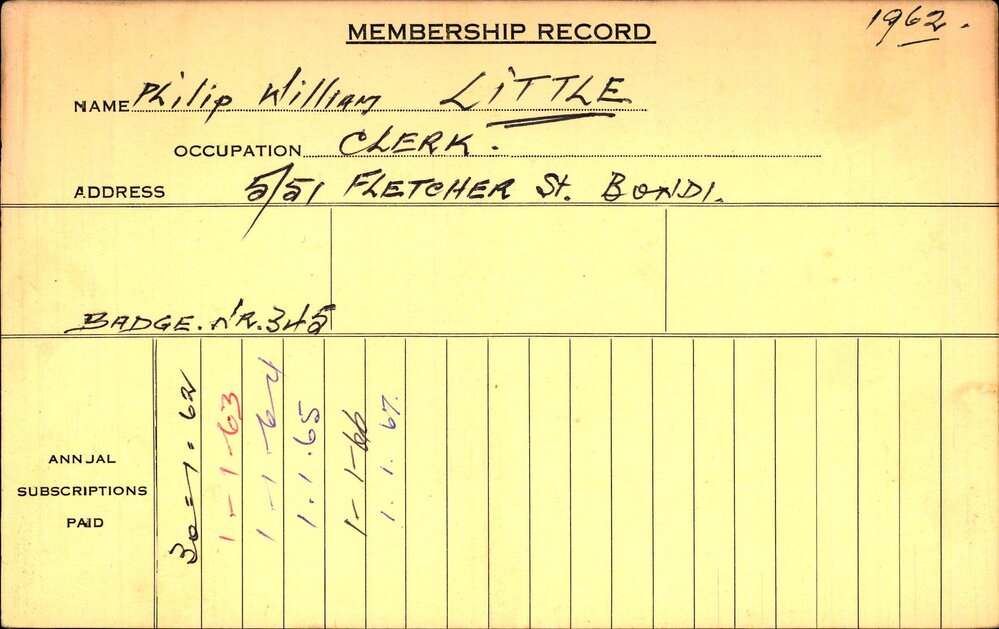 1962.
MEMBERSHIP RECORD
NAME Philip William LITTLE
OCCUPATION CLERK.
ADDRESS 5/51 FLETCHER St. BONDI.
BADGE. N'R. 345
ANNJAL
SUBSCRIPTIONS
PAID
30-1-62
1-1-63
1-1-64
1.1.65
1-1-66
1.1.67.